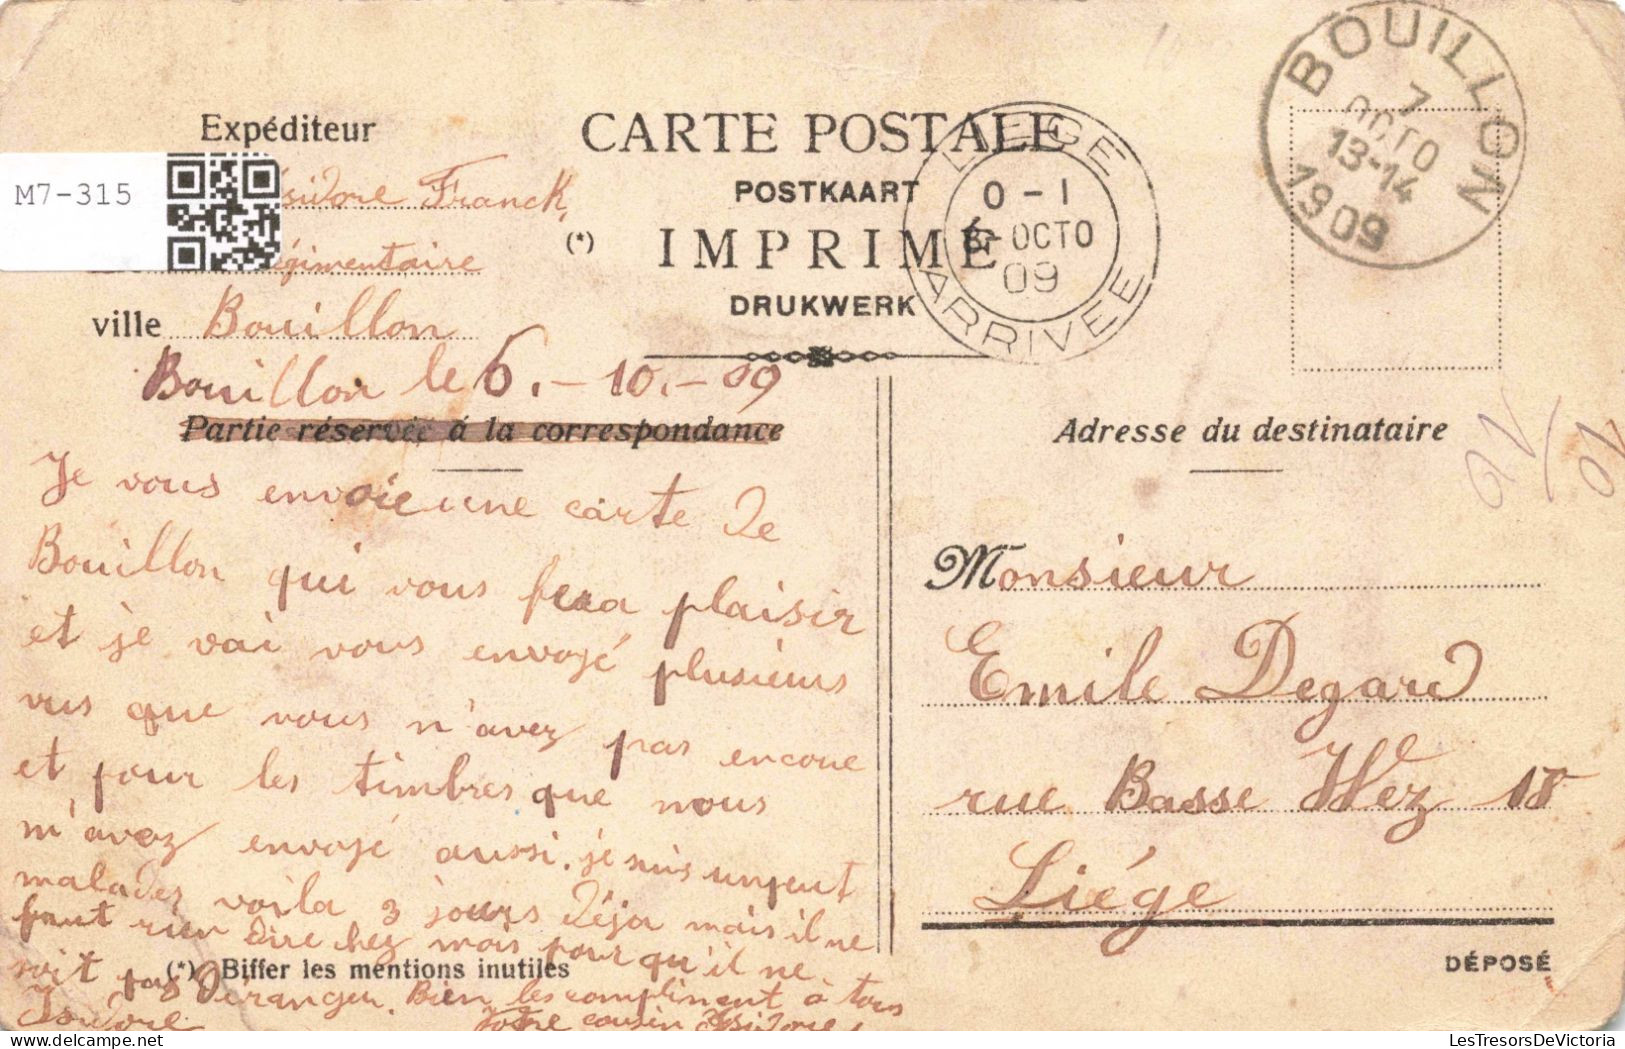 BOUILLON
7
OCTO
13-14
1909
Expéditeur
CARTE POSTALE
LIEGE
M7-315
sidore Franck,
POSTKAART
0 - 1
(*)
IMPRIMÉ
8-OCTO
égimentaire
09
DRUKWERK
ARRIVEE
ville Bouillon
Bouillon le 6.-10.-09
Partie réservée á la correspondance
Je vous envoie une carte de
Bouillon qui vous fera plaisir
et je vai vous envoyé plusieurs
vus que vous n'avez pas encore
et pour les timbres que nous
m'avez envoyé aussi. je suis unpeut
malades voila 3 jours déja mais il ne
faut rien dire chez mois pour qu'il ne
soit pas déranger. Bien les compliment à tous
Isidore Votre cousin Isidore
(*) Biffer les mentions inutiles
Adresse du destinataire
Monsieur
Emile Degard
rue Basse Wez 18
Liége
DÉPOSÉ
LesTresorsDeVictoria